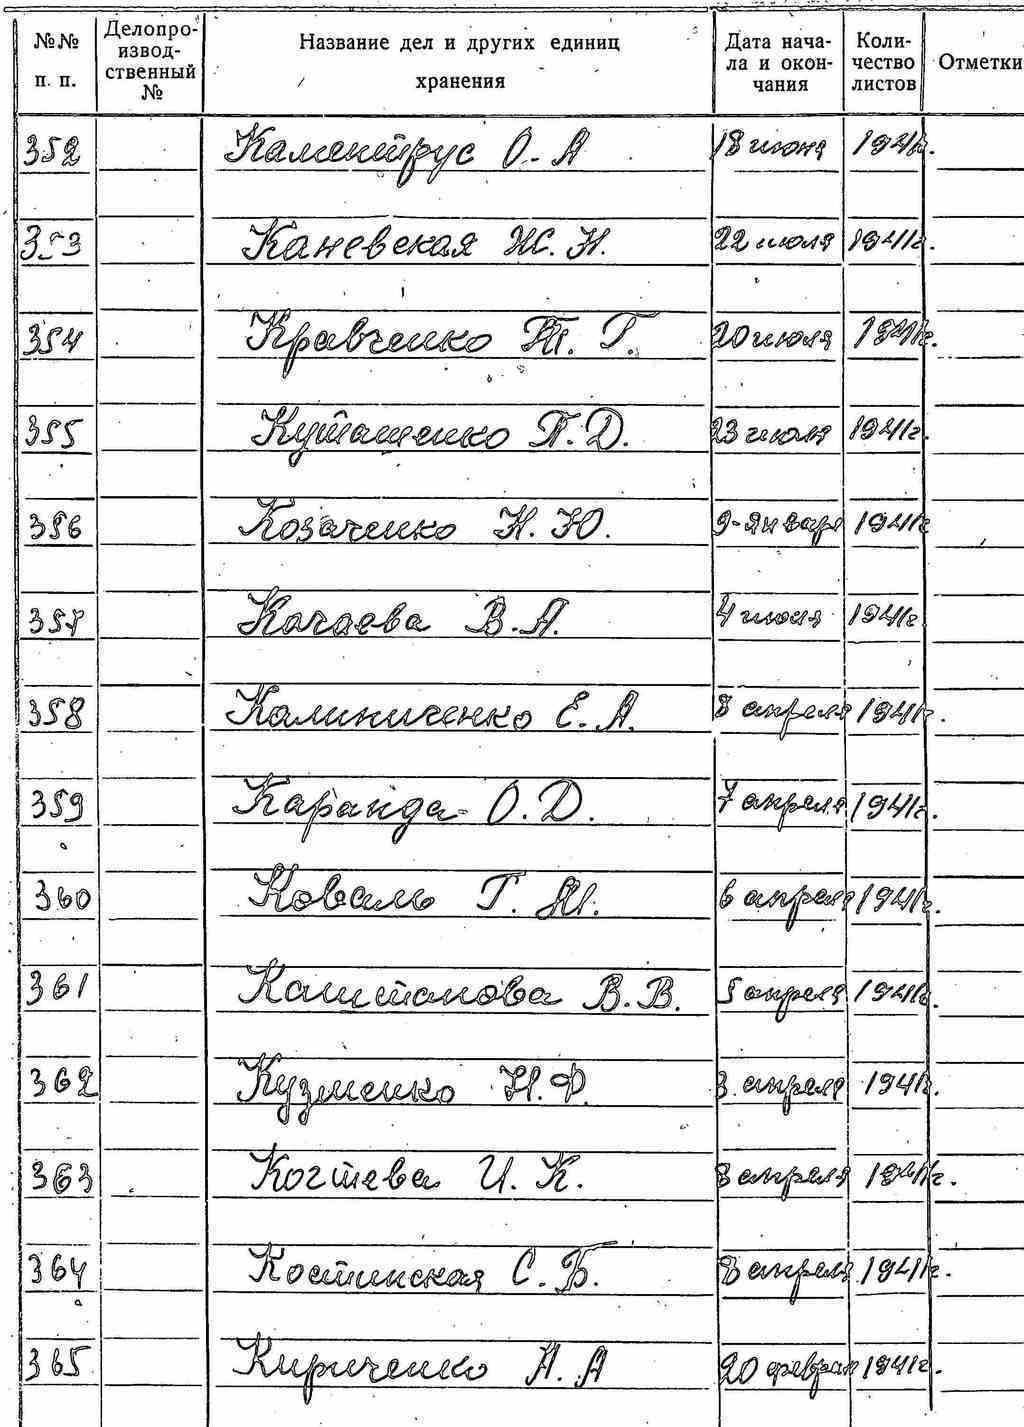 №№ п. п. Делопро-извод-ственный № Название дел и других единиц хранения Дата нача-ла и окон-чания Коли-чество листов Отметки
352 Каментрус О.А 18 июня 1941г.
353 Каневская Ж.Н. 22 июля 1941г.
354 Кравченко Т. Г. 20 июля 1941г.
355 Куташенко П.Д. 23 июля 1941г.
356 Козаченко Н.Ю. 9 января 1941г
357 Качаева В.А. 4 июня 1941г
358 Калиниченко Е.А. 8 апреля 1941г.
359 Каранда О.Д. 7 апреля 1941г.
360 Коваль Г.М. 6 апреля 1941г.
361 Каштанова В.В. 5 апреля 1941г.
362 Кузменко Н.Ф. 3 апреля 1941г.
363 Когтева И.К. 8 апреля 1941г.
364 Костинская С.Б. 8 апреля 1941г.
365 Кириченко Н.А 20 феврал 1941г.